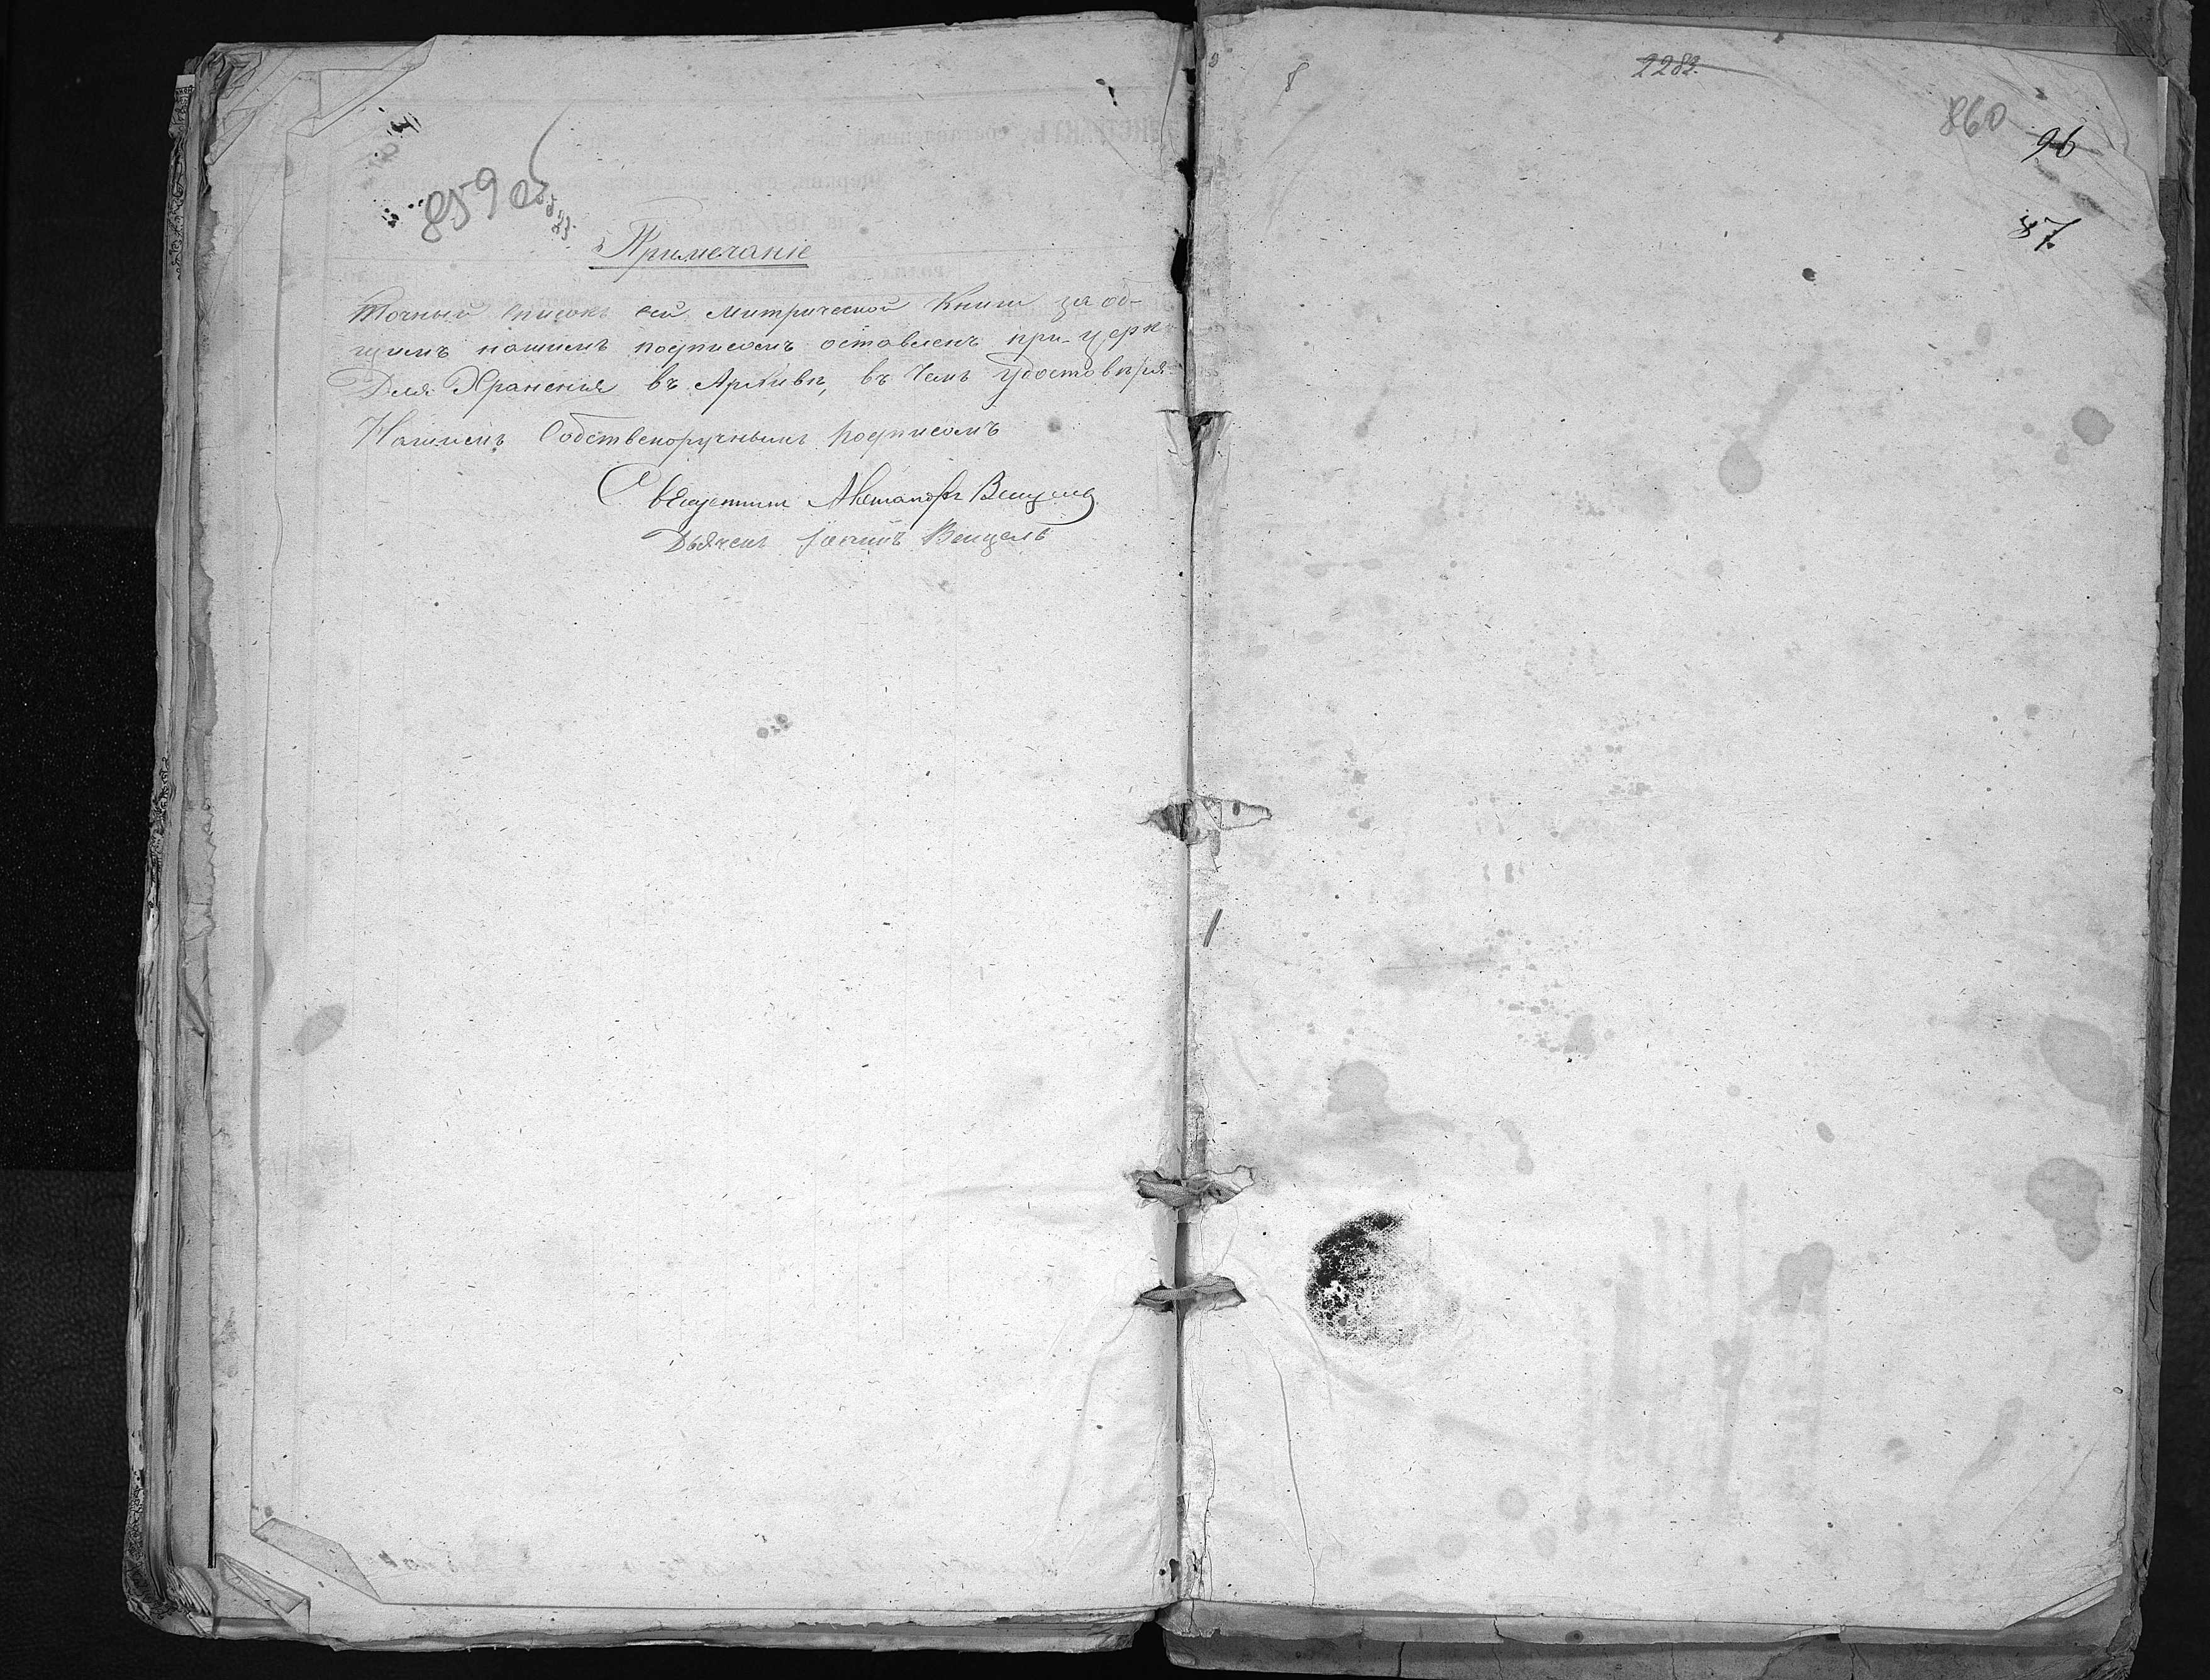 859 об
Примечаніе
Точный списокъ сей метрической Книги за об-
щимъ нашимъ подписомъ оставленъ при церк
Для Храненія въ Архивѣ, въ Чемъ Удостовѣря-
Нашимъ Собственоручнымъ подписомъ
Священникъ Венцель
Дьячекъ Іоаннъ Венцель
2283.
860
96
87